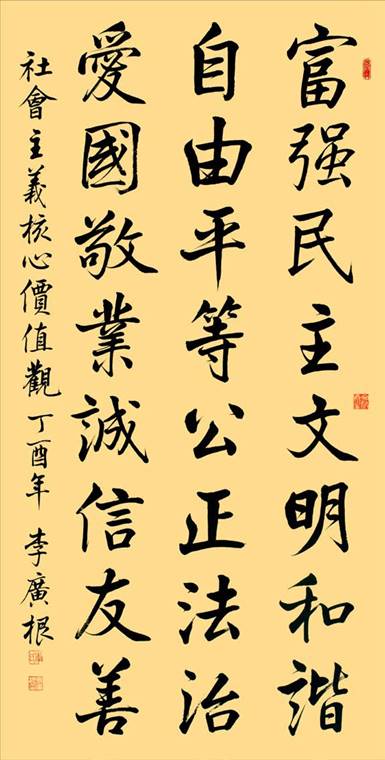 富强民主文明和諧
自由平等公正法治
愛國敬業誠信友善
社會主義核心價值觀 丁酉年 李廣根